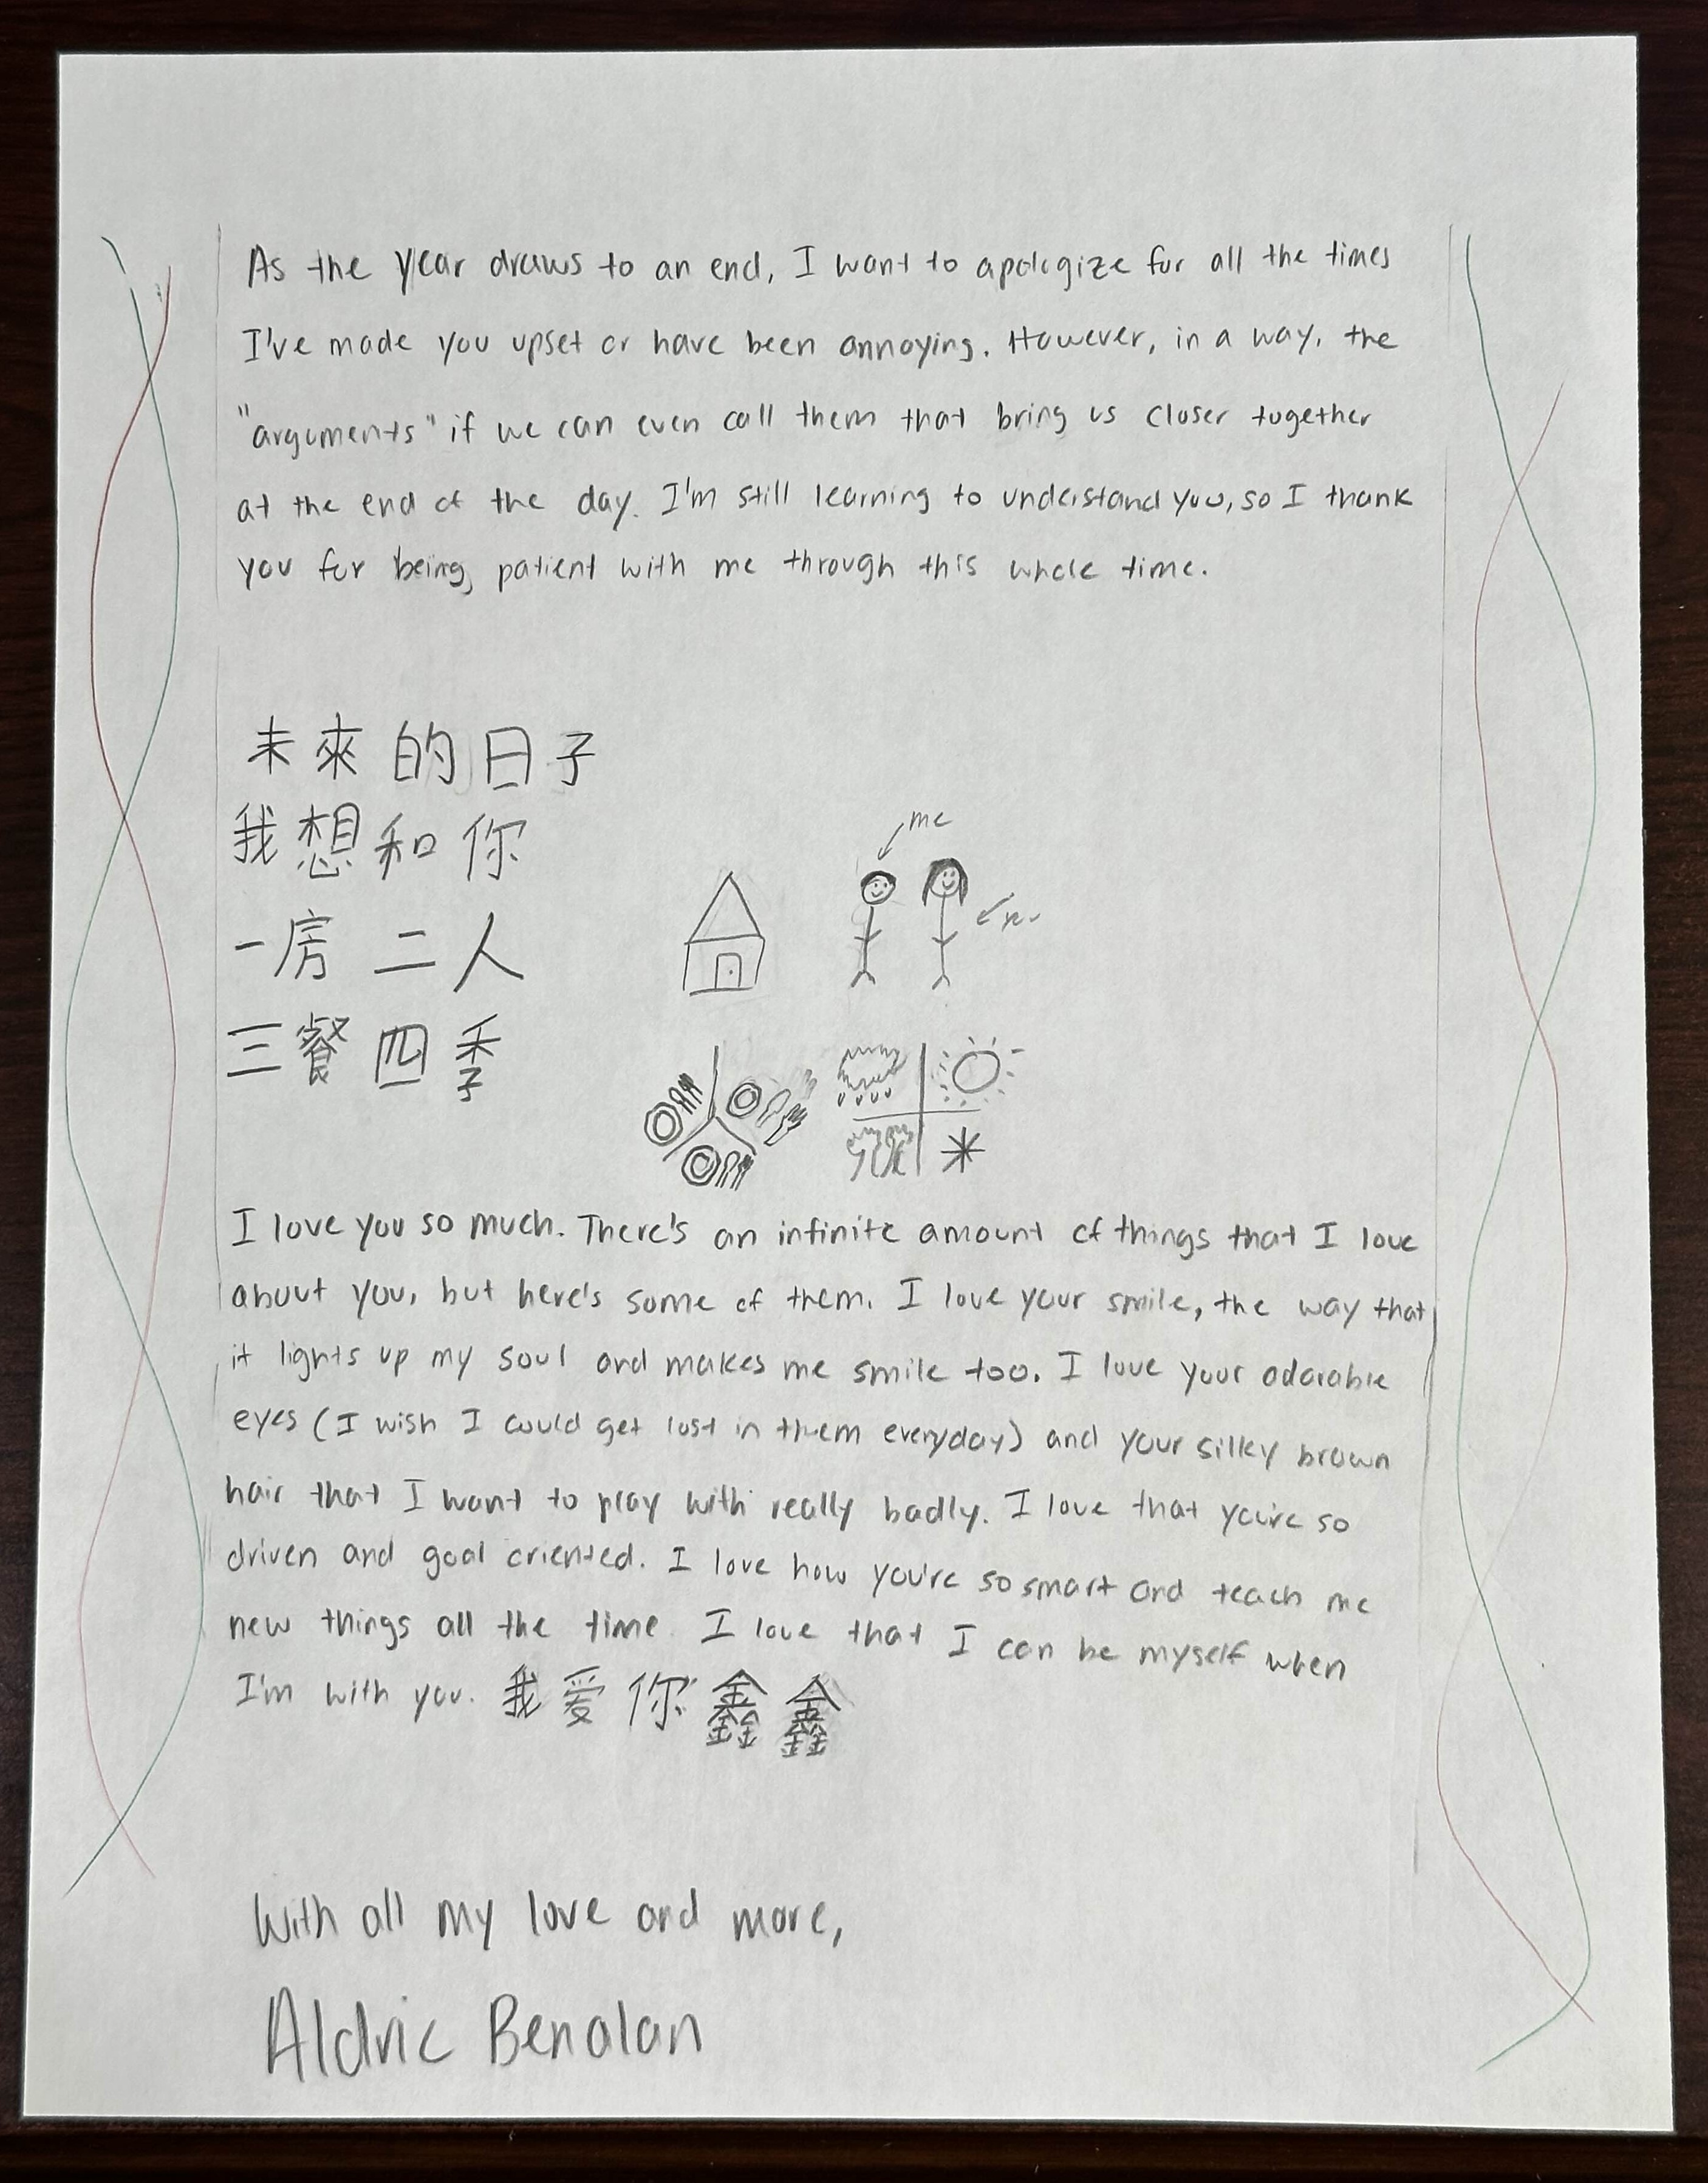 As the year draws to an end, I want to apologize for all the times
I've made you upset or have been annoying. However, in a way, the
"arguments" if we can even call them that bring us closer together
at the end of the day. I'm still learning to understand you, so I thank
you for being patient with me through this whole time.
未來的日子
我想和你
一房二人
三餐四季
me
I love you so much. There's an infinite amount of things that I love
about you, but here's some of them. I love your smile, the way that
it lights up my soul and makes me smile too. I love your adorable
eyes (I wish I could get lost in them everyday) and your silky brown
hair that I want to play with really badly. I love that you're so
driven and goal oriented. I love how you're so smart and teach me
new things all the time. I love that I can be myself when
I'm with you. 我爱你鑫鑫
With all my love and more,
Aldric Benalan